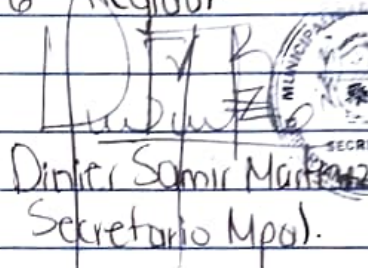 6 Regidor
MUNICIPAL
SECR
Dinier Samir Martinez
Secretario Mpal.